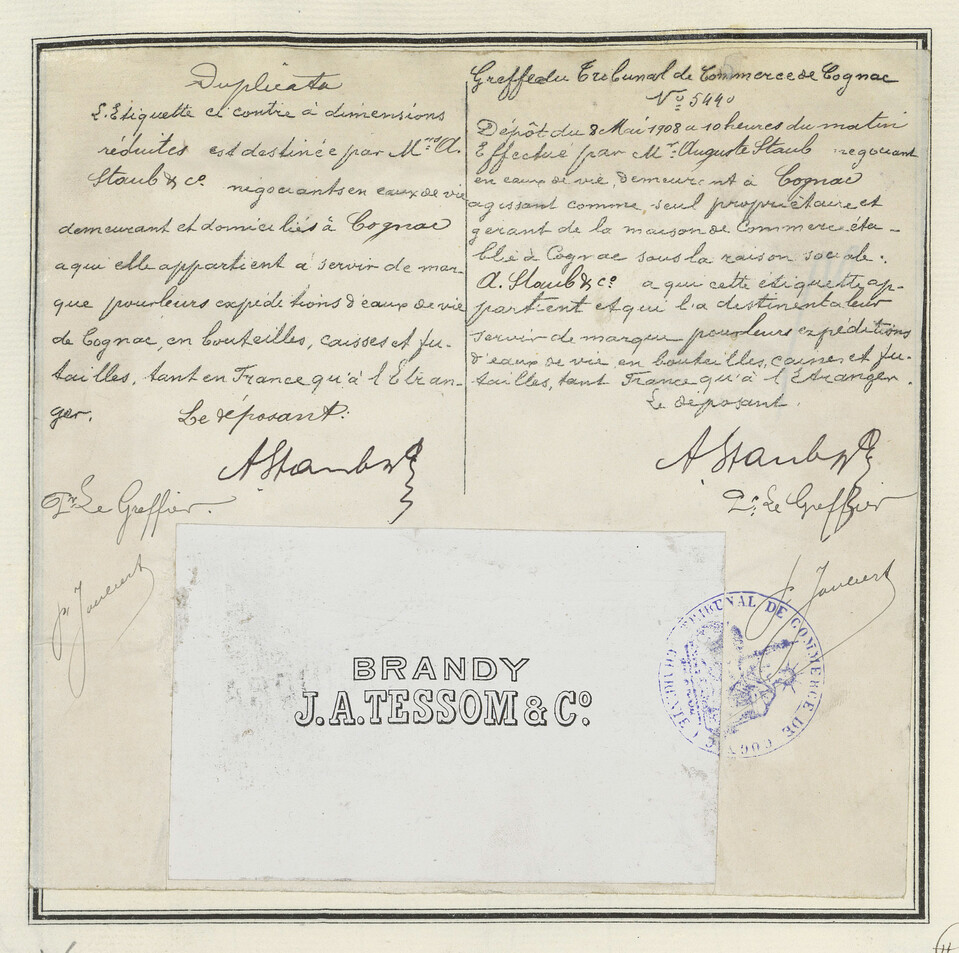 Duplicata
L'Etiquette ci contre à dimensions
réduites est destinée par Mrs A.
Staub & Co. négociants en eaux de vie
demeurant et domiciliés à Cognac
a qui elle appartient à servir de mar-
que pour leurs expéditions d'eaux de vie
de Cognac, en bouteilles, caisses et fu-
tailles, tant en France qu'à l'Etran-
ger. Le déposant:
A Staub & Co
Pr. Le Greffier.
Greffe du Tribunal de Commerce de Cognac
No 5440
Dépôt du 8 Mai 1908 a 10 heures du matin
Effectué par Mr. Auguste Staub négociant
en eaux de vie, demeurent à Cognac
agissant comme, seul propriétaire et
gérant de la maison de Commerce éta-
blie à Cognac sous la raison sociale.
A. Staub & Co. a qui cette etiquette ap-
partient et qui l'a destinent a leur
servir de marque pour leurs expéditions
d'eaux de vie en bouteilles, caisses, et fu-
tailles, tant France qu'à l'Etranger.
Le déposant.
A Staub & Co
Pr. Le Greffier
BRANDY
J.A.TESSOM & Co.
TRIBUNAL DE COMMERCE DE COGNAC